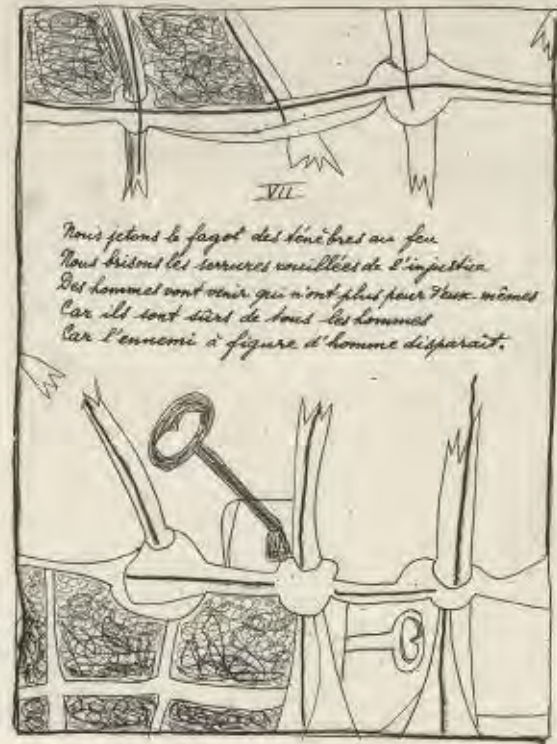 VII
Nous jetons le fagot des ténèbres au feu
Nous brisons les serrures rouillées de l'injustice
Des hommes vont venir qui n'ont plus peur d'eux-mêmes
Car ils sont sûrs de tous les hommes
Car l'ennemi à figure d'homme disparaît.